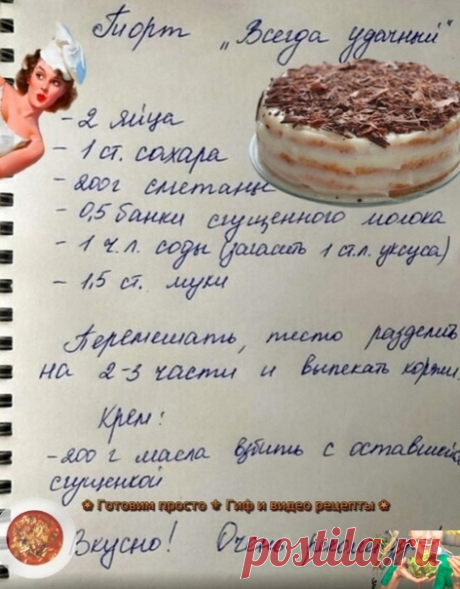 Торт „Всегда удачный"
- 2 яйца
- 1 ст. сахара
- 200г сметаны
- 0,5 банки сгущенного молока
- 1 ч.л. соды (загасить 1 ст.л. уксуса)
- 1,5 ст. муки
Перемешать, тесто разделить
на 2-3 части и выпекать коржи.
Крем:
- 200 г масла взбить с оставшейся
сгущенкой
Готовим просто Гиф и видео рецепты
Вкусно! Очень
postila.ru